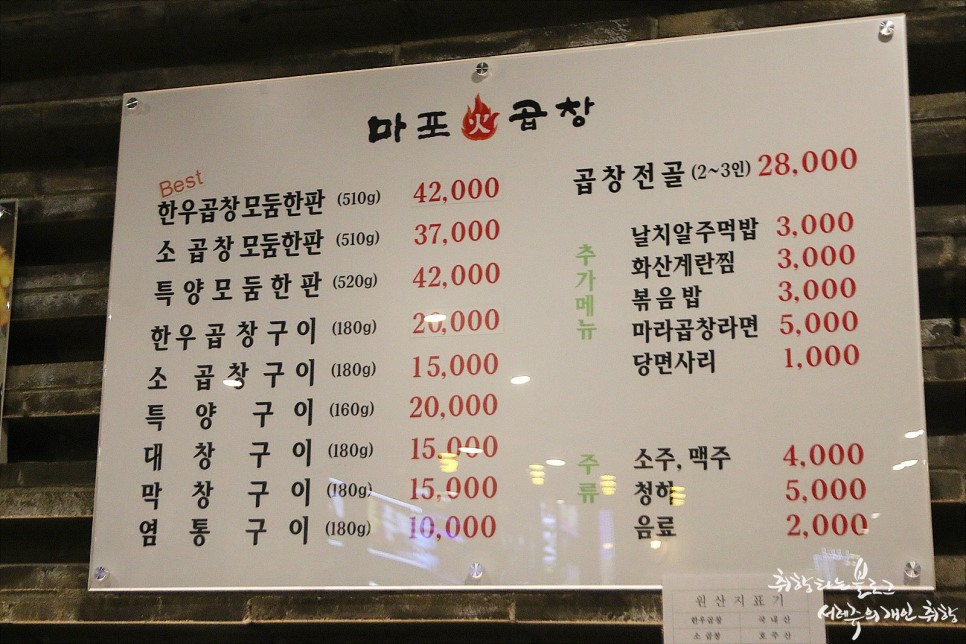 마포 火 곱창
Best
한우곱창모둠한판 (510g) 42,000
소 곱창모둠한판 (510g) 37,000
특양모둠한판 (520g) 42,000
한우곱창구이 (180g) 20,000
소 곱창구이 (180g) 15,000
특양구이 (160g) 20,000
대창구이 (180g) 15,000
막창구이 (180g) 15,000
염통구이 (180g) 10,000
곱창전골 (2~3인) 28,000
추가메뉴
날치알주먹밥 3,000
화산계란찜 3,000
볶음밥 3,000
마라곱창라면 5,000
당면사리 1,000
주류
소주, 맥주 4,000
청하 5,000
음료 2,000
원산지표기
한우곱창 국내산
소곱창 호주산
취향타는 블로그
서현주의 개인.취향